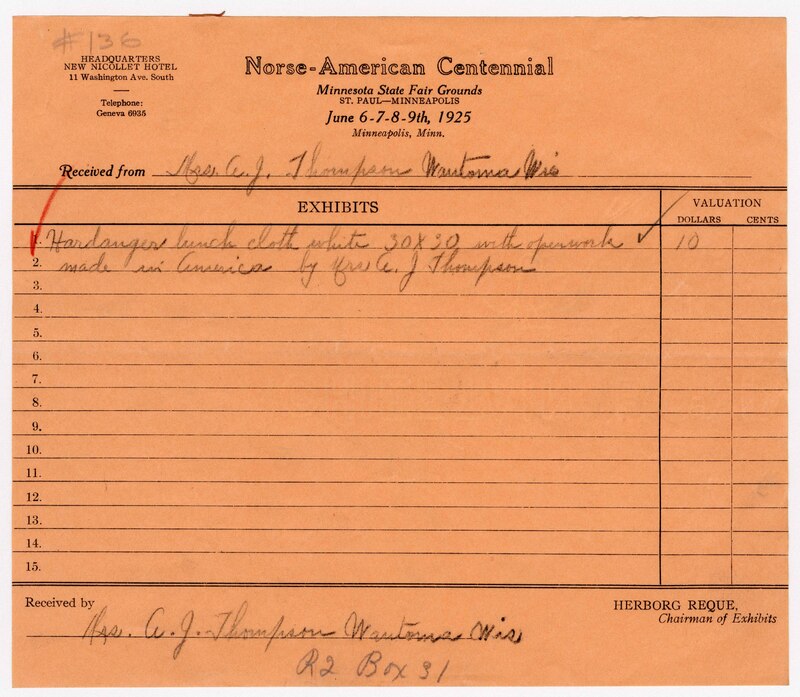 #136
HEADQUARTERS
NEW NICOLLET HOTEL
11 Washington Ave. South
Telephone:
Geneva 6935
Norse-American Centennial
Minnesota State Fair Grounds
ST. PAUL—MINNEAPOLIS
June 6-7-8-9th, 1925
Minneapolis, Minn.
Received from Mrs. A. J. Thompson Wautoma Wis
EXHIBITS
VALUATION
DOLLARS CENTS
1. Hardanger lunch cloth white 30X30 with openwork ✓ 10
2. made in America by Mrs A. J Thompson
3.
4.
5.
6.
7.
8.
9.
10.
11.
12.
13.
14.
15.
Received by
Mrs. A. J. Thompson Wautoma Wis
R2 Box 31
HERBORG REQUE,
Chairman of Exhibits